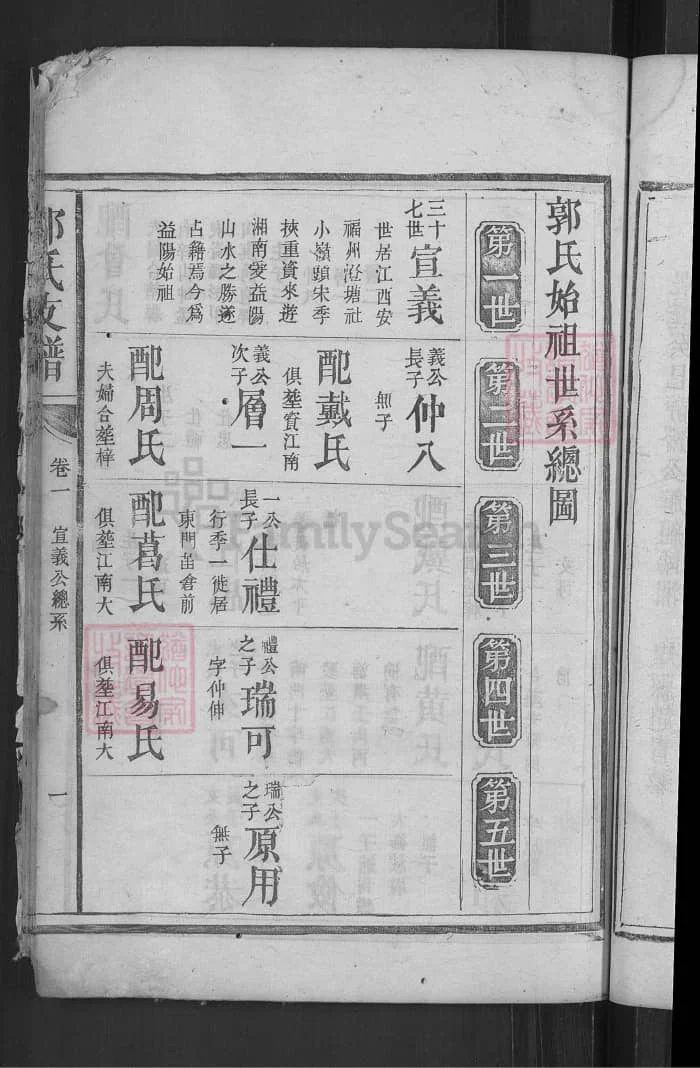 郭氏始祖世系總圖
第一世
第二世
第三世
第四世
第五世
三十七世
宣義
世居江西安
福州澄塘社
小嶺顕宋季
挾重資來遊
湘南愛益陽
山水之勝遂
占籍焉今爲
益陽始祖
義公長子
仲八
無子
配戴氏
俱塟寳江南
義公次子
層一
配周氏
夫婦合塟梓
一公長子
仕禮
行季一徙居
東門苗倉前
配葛氏
俱塟江南大
禮公之子
瑞可
字仲伸
配易氏
俱塟江南大
瑞公之子
原用
無子
郭氏支譜
卷一
宣義公總系
一
FamilySearch